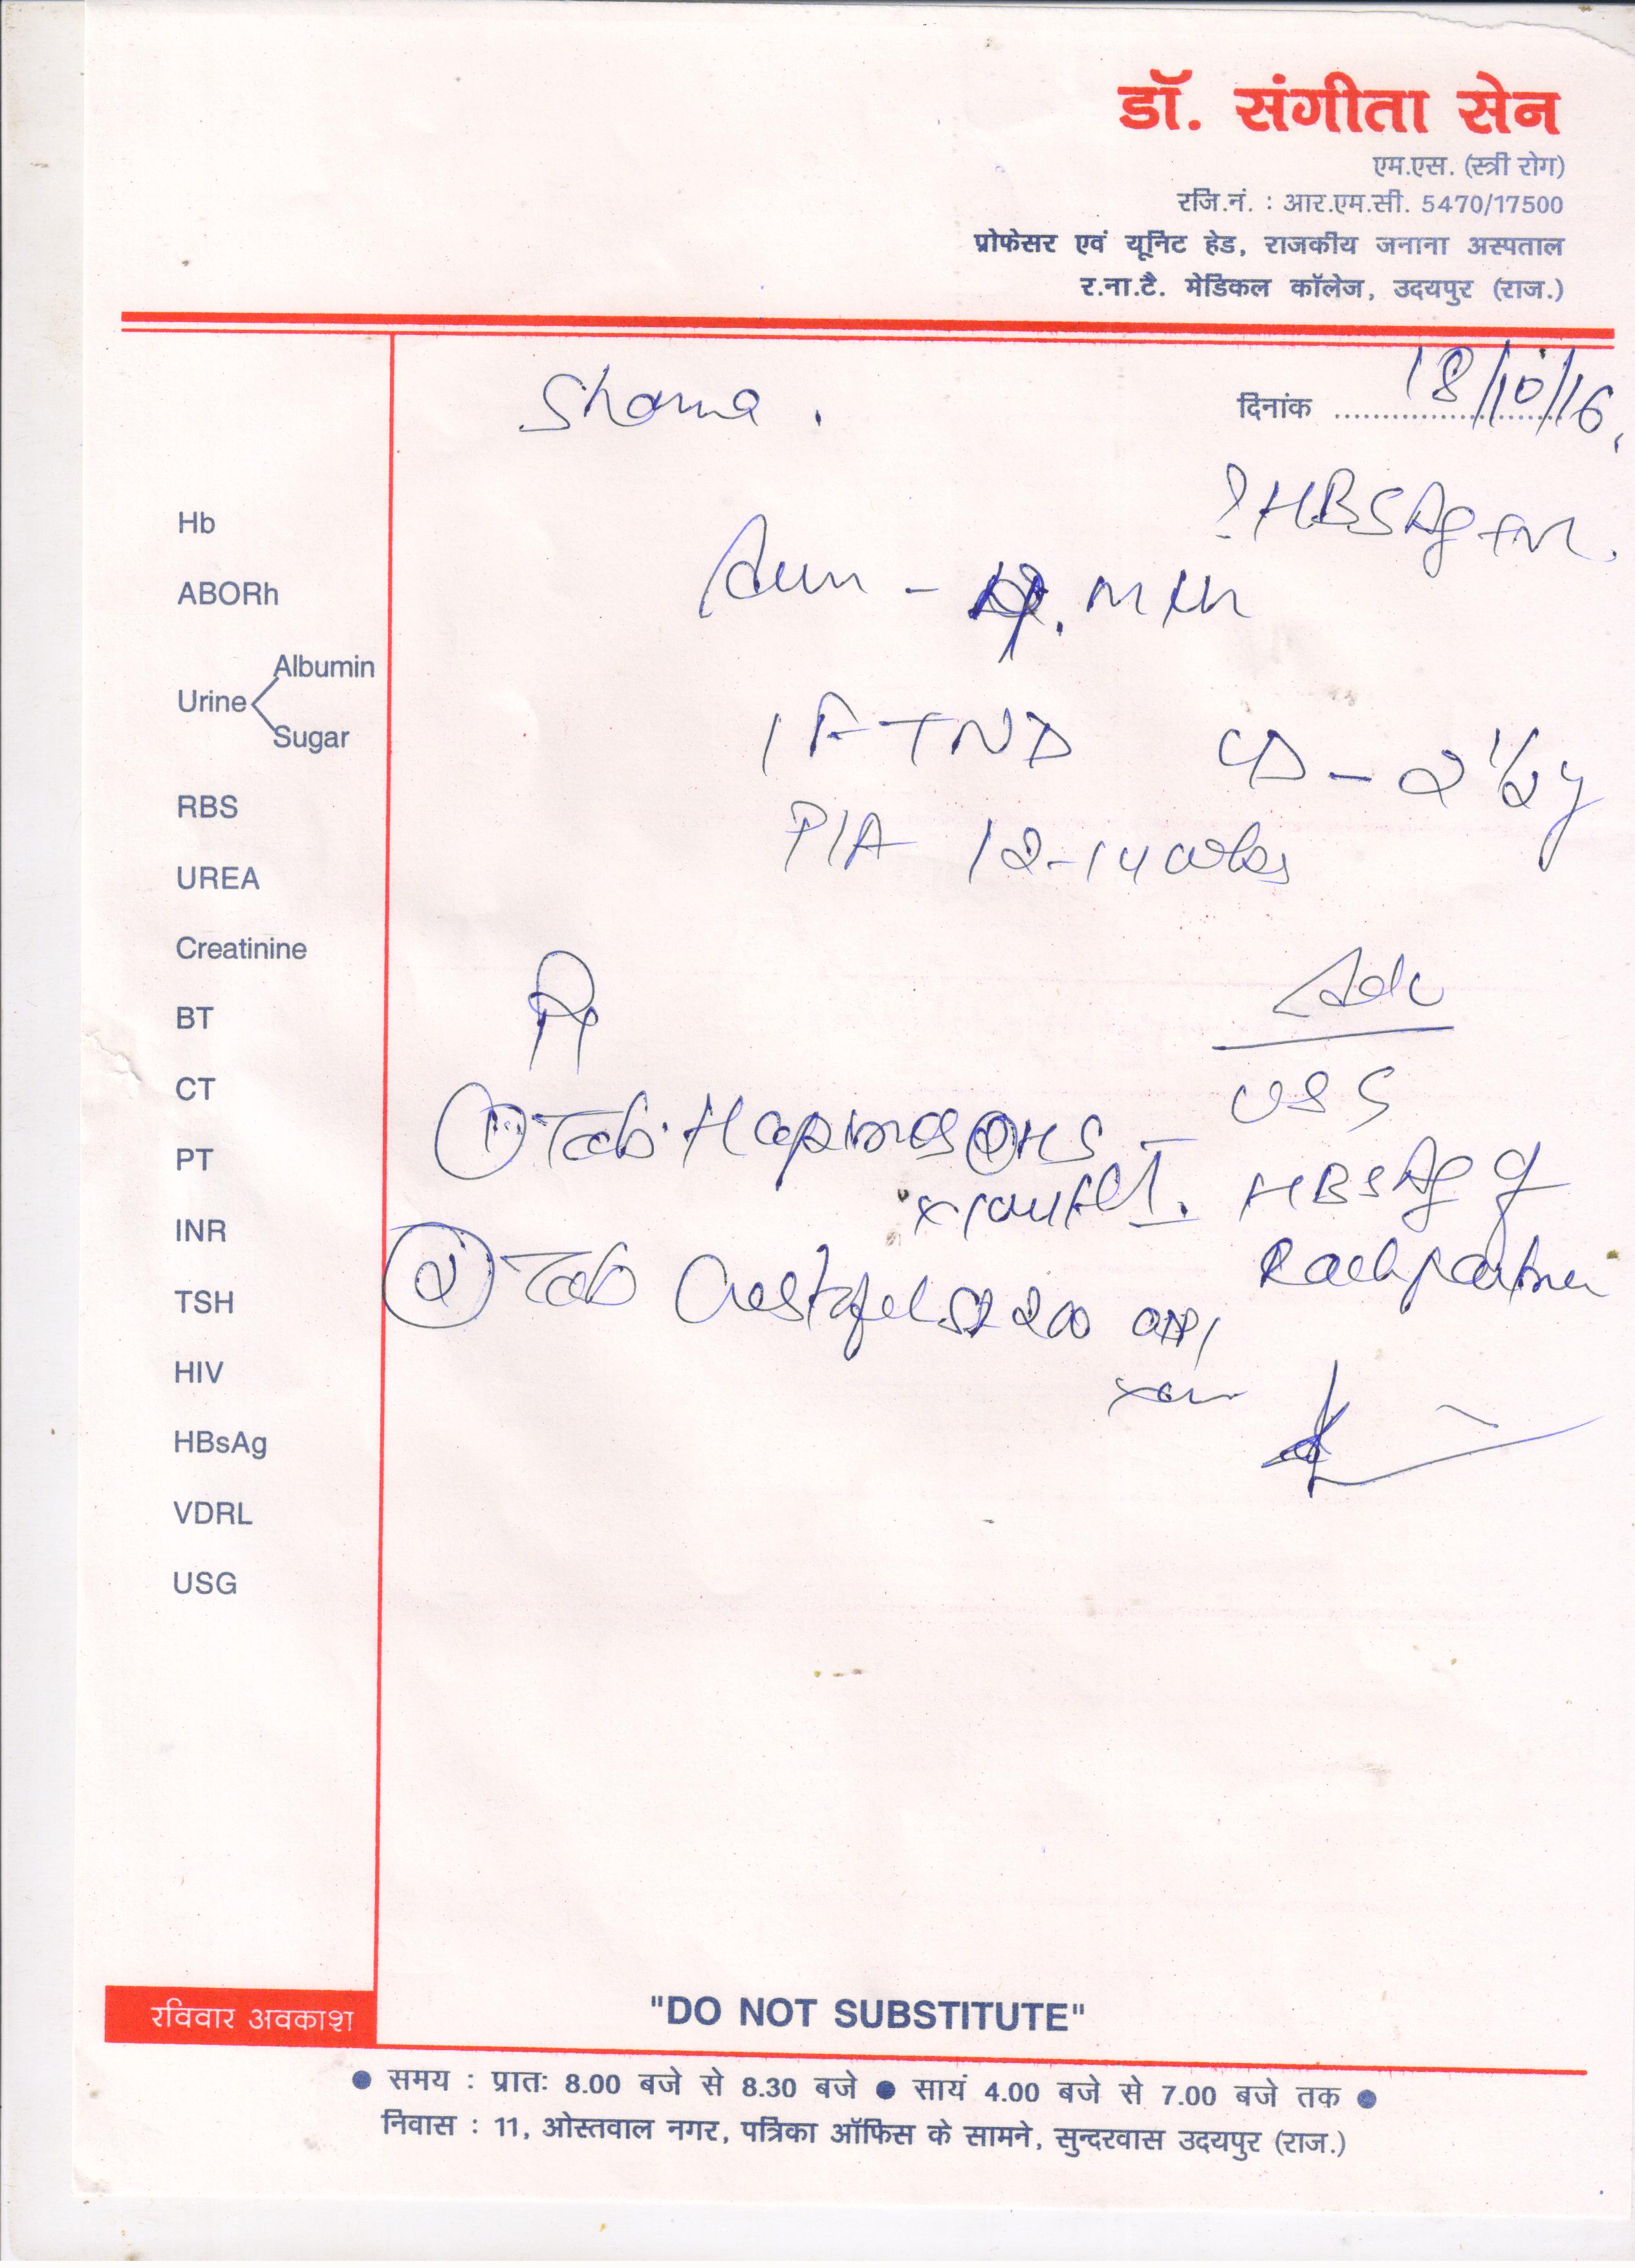 डॉ. संगीता सेन
एम.एस. (स्त्री रोग)
रजि.नं. : आर.एम.सी. 5470/17500
प्रोफेसर एवं यूनिट हेड, राजकीय जनाना अस्पताल
र.ना.टै. मेडिकल कॉलेज, उदयपुर (राज.)
दिनांक 18/10/16
? HBSAg
1 FTND
LD - 2 1/2 y
P/A 12-14 wks
Hb
ABORh
Urine
Albumin
Sugar
RBS
UREA
Creatinine
BT
CT
PT
INR
TSH
HIV
HBsAg
VDRL
USG
Rx
① Tab. HS
② Tab 200
Adv
USG
HBSAg of
Each partner
रविवार अवकाश
"DO NOT SUBSTITUTE"
● समय : प्रातः 8.00 बजे से 8.30 बजे ● सायं 4.00 बजे से 7.00 बजे तक ●
निवास : 11, ओस्तवाल नगर, पत्रिका ऑफिस के सामने, सुन्दरवास उदयपुर (राज.)